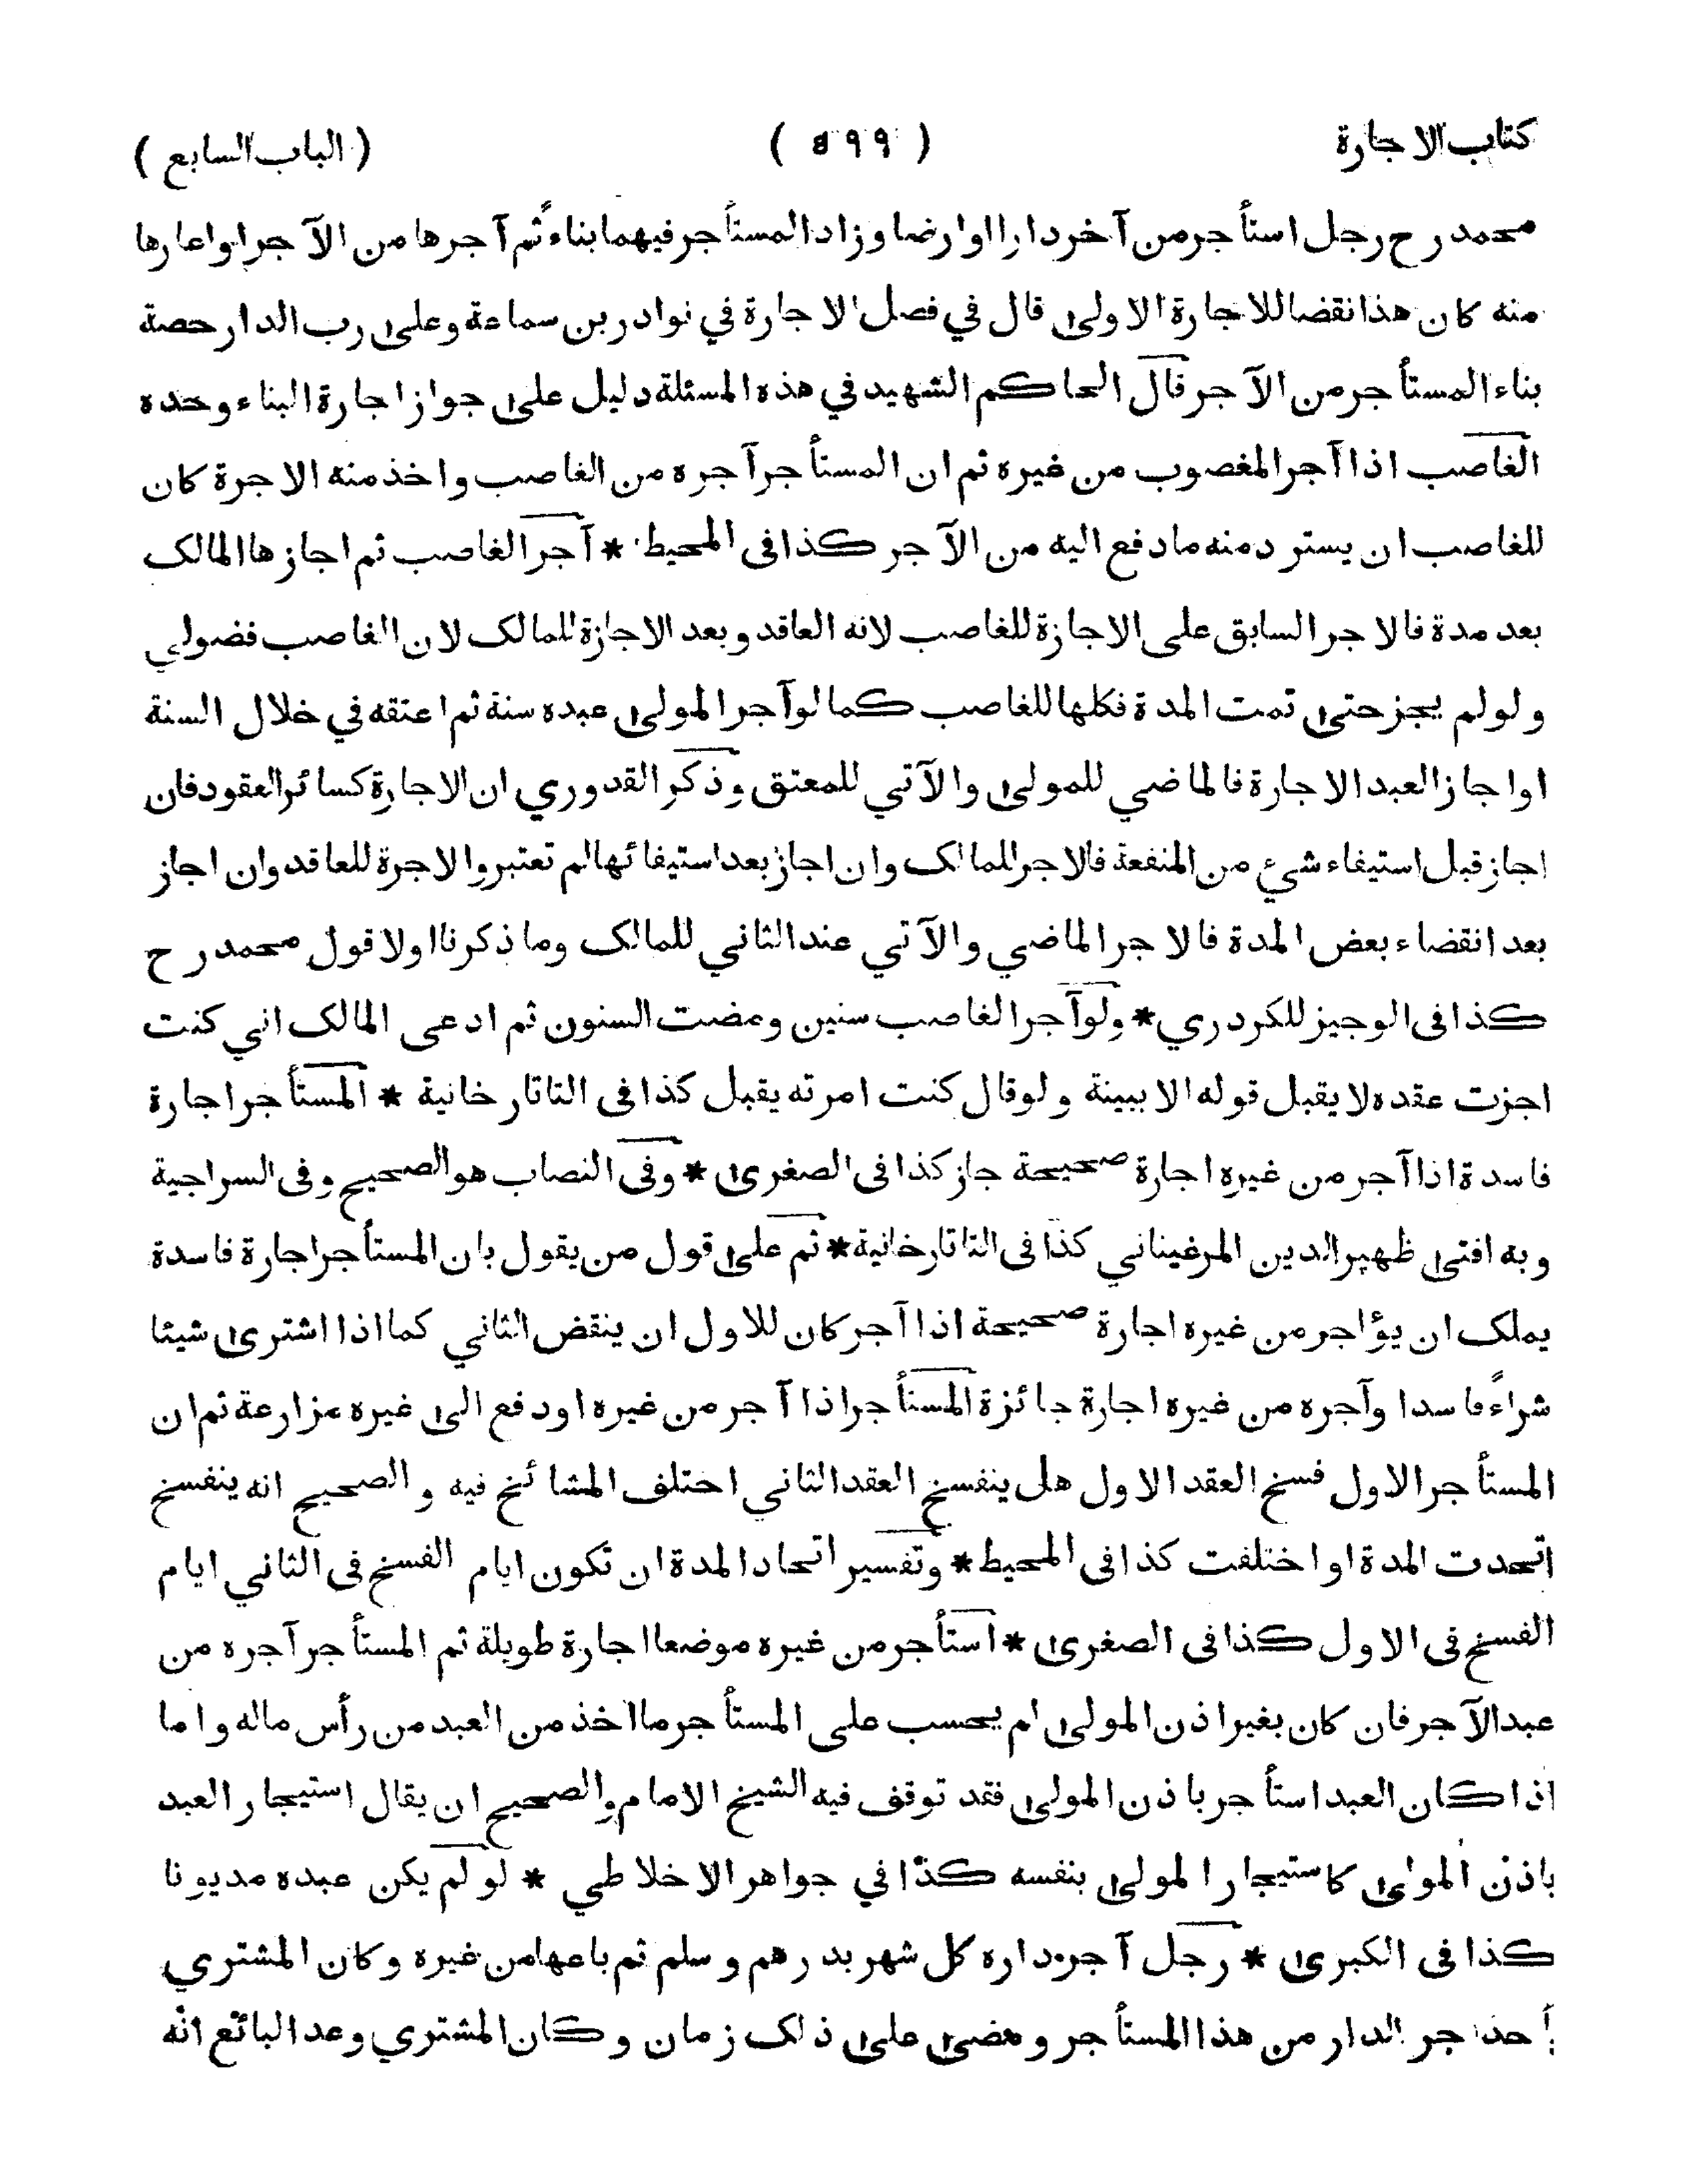 كتاب الاجارة ( ٥٩٩ ) ( الباب السابع )
محمد رح رجل استأجر من آخر دارا اوارضا وزاد المستأجر فيهما بناءً ثم آجرها من الآجر اواعارها
منه كان هذا نقضا للاجارة الاولىٰ قال في فصل الاجارة في نوادر بن سماعة وعلىٰ رب الدار حصة
بناء المستأجر من الآجر قال الحاكم الشهيد في هذه المسئلة دليل علىٰ جواز اجارة البناء وحده
الغاصب اذا آجر المغصوب من غيره ثم ان المستأجر آجره من الغاصب واخذ منه الاجرة كان
للغاصب ان يسترد منه ما دفع اليه من الآجر كذا فى المحيط * آجر الغاصب ثم اجازها المالك
بعد مدة فالاجر السابق على الاجازة للغاصب لانه العاقد و بعد الاجازة للمالك لان الغاصب فضولي
ولو لم يجز حتىٰ تمت المدة فكلها للغاصب كما لو آجر المولىٰ عبده سنة ثم اعتقه في خلال السنة
اواجاز العبد الاجارة فالماضي للمولىٰ والآتي للمعتق وذكر القدوري ان الاجارة كسائر العقود فان
اجاز قبل استيفاء شيء من المنفعة فالاجر للمالك وان اجاز بعد استيفائها لم تعتبر والاجرة للعاقد وان اجاز
بعد انقضاء بعض المدة فالاجر الماضي والآتي عند الثاني للمالك وما ذكرنا اولا قول محمد رح
كذا فى الوجيز للكردري * ولو آجر الغاصب سنين ومضت السنون ثم ادعى المالك اني كنت
اجزت عقده لا يقبل قوله الا ببينة ولو قال كنت امرته يقبل كذا فى التاتارخانية * المستأجر اجارة
فاسدة اذا آجر من غيره اجارة صحيحة جاز كذا فى الصغرىٰ * وفى النصاب هو الصحيح وفى السراجية
وبه افتىٰ ظهير الدين المرغيناني كذا فى التاتارخانية * ثم علىٰ قول من يقول بان المستأجر اجارة فاسدة
يملك ان يؤاجر من غيره اجارة صحيحة اذا آجر كان للاول ان ينقض الثاني كما اذا اشترىٰ شيئا
شراءً فاسدا وآجره من غيره اجارة جائزة المستأجر اذا آجر من غيره او دفع الىٰ غيره مزارعة ثم ان
المستأجر الاول فسخ العقد الاول هل ينفسخ العقد الثاني اختلف المشائخ فيه والصحيح انه ينفسخ
اتحدت المدة او اختلفت كذا فى المحيط * وتفسير اتحاد المدة ان تكون ايام الفسخ فى الثاني ايام
الفسخ فى الاول كذا فى الصغرىٰ * استأجر من غيره موضعا اجارة طويلة ثم المستأجر آجره من
عبد الآجر فان كان بغير اذن المولىٰ لم يحسب على المستأجر ما اخذ من العبد من رأس ماله واما
اذا كان العبد استأجر باذن المولىٰ فقد توقف فيه الشيخ الامام والصحيح ان يقال استيجار العبد
باذن المولىٰ كاستيجار المولىٰ بنفسه كذا في جواهر الاخلاطي * لو لم يكن عبده مديونا
كذا فى الكبرىٰ * رجل آجر داره كل شهر بدرهم وسلم ثم باعها من غيره وكان المشتري
يأخذ اجر الدار من هذا المستأجر ومضىٰ علىٰ ذلك زمان وكان المشتري وعد البائع انه